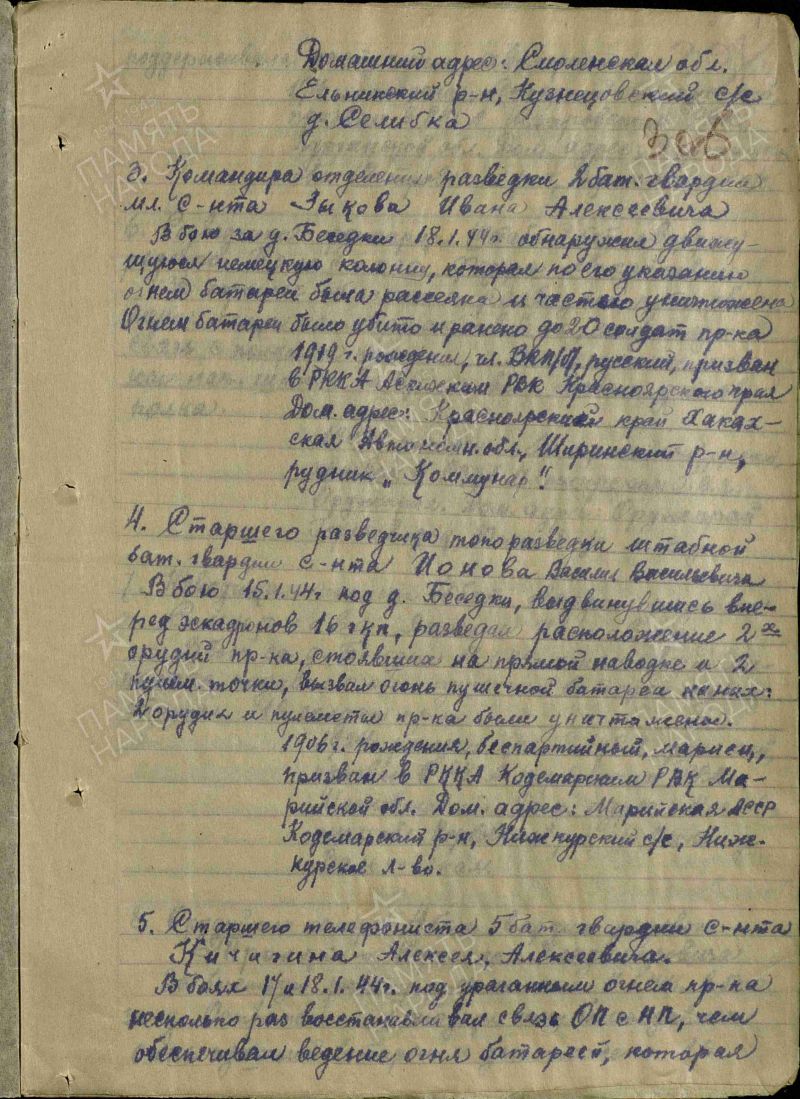 Домашний адрес: Смоленская обл.
Ельнинский р-н, Кузнецовский с/с
д. Селибка
3. Командира отделения разведки 2 бат. гвардии
мл. с-нта Зыкова Ивана Алексеевича
В бою за д. Беседки 18.1.44г. обнаружил движу-
щуюся немецкую колонну, которая по его указанию
огнем батареи была рассеяна и частью уничтожена
Огнем батареи было убито и ранено до 20 солдат пр-ка
1919 г. рождения, чл. ВКП/б/, русский, призван
в РККА РВК Красноярского края
Дом. адрес: Красноярский край Хакас-
ская Автономн. обл., Ширинский р-н,
рудник „Коммунар".
4. Старшего разведчика топоразведки штабной
бат. гвардии с-нта Ионова Василия Васильевича
В бою 15.1.44г под д. Беседки, выдвинувшись впе-
ред эскадронов 16 гкп, разведал расположение 2х
орудий пр-ка, стоявших на прямой наводке и 2
пулем. точки, вызвал огонь пушечной батареи на них:
2 орудия и пулеметы пр-ка были уничтожены.
1906 г. рождения, беспартийный, мариец,
призван в РККА Кодемарским РВК Ма-
рийской обл. Дом. адрес: Марийская АССР
Кодемарский р-н, Нижнурский с/с, Ниж-
нурское л-во.
5. Старшего телефониста 5 бат. гвардии с-нта
Кичигина Алексея Алексеевича.
В боях 17 и 18.1.44г. под ураганным огнем пр-ка
несколько раз восстанавливал связь ОП с НП, чем
обеспечивал ведение огня батареей, которая
ПАМЯТЬ
НАРОДА